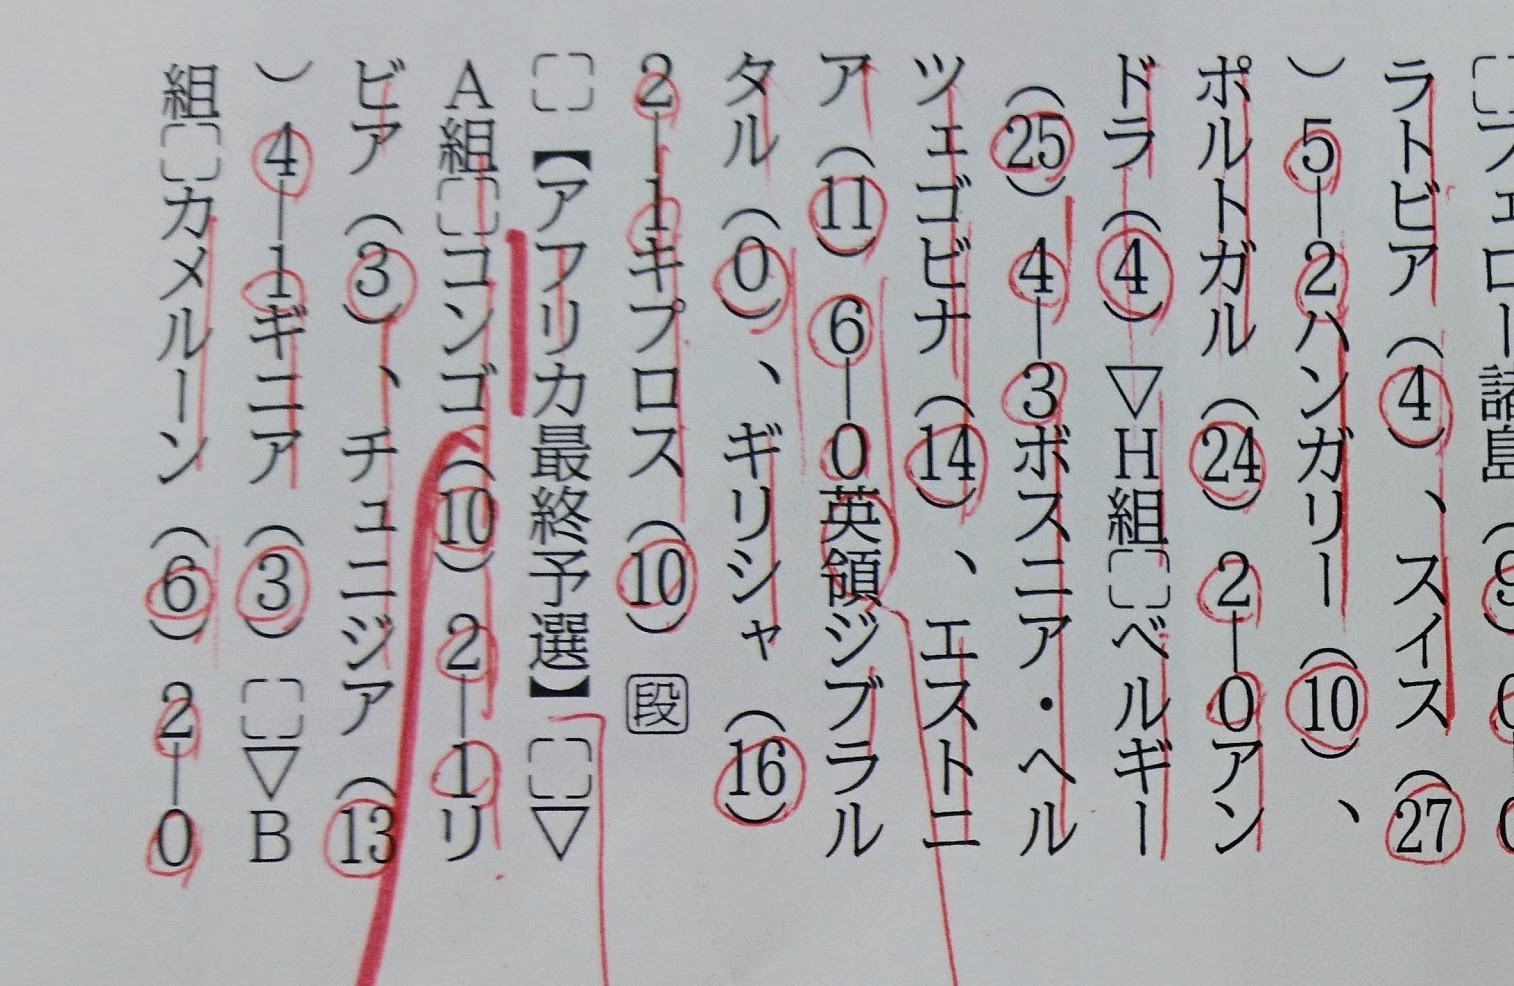 フェロー諸島（9）0
ラトビア（4）、スイス（27
）5―2ハンガリー（10）、
ポルトガル（24）2―0アン
ドラ（4）▽H組 ベルギー
（25）4―3ボスニア・ヘル
ツェゴビナ（14）、エストニ
ア（11）6―0英領ジブラル
タル（0）、ギリシャ（16）
2―1キプロス（10）段
【アフリカ最終予選】 ▽
A組 コンゴ（10）2―1リ
ビア（3）、チュニジア（13
）4―1ギニア（3） ▽B
組 カメルーン（6）2―0